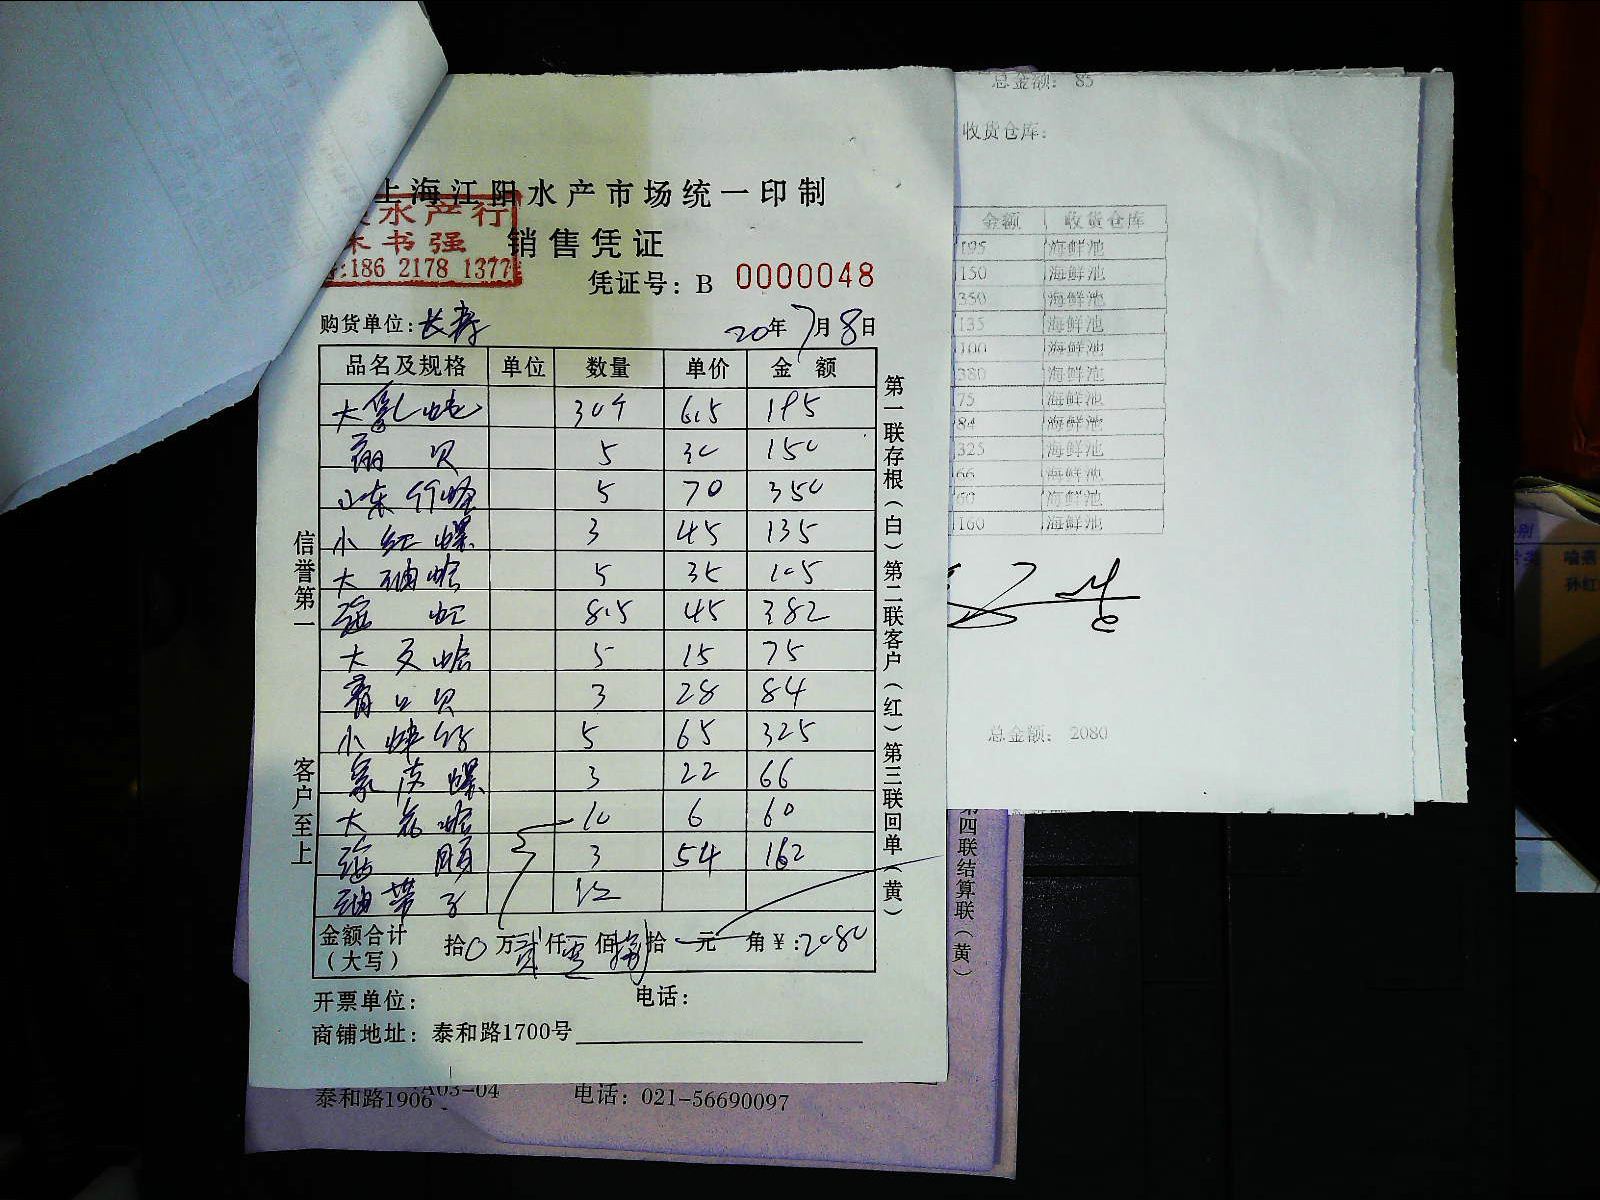 上海江阳水产市场统一印制
水产行
书强
:186 2178 1377
销售凭证
凭证号：B 0000048
购货单位：长寿
20年7月8日
品名及规格 单位 数量 单价 金额
大乳蚝 30个 6.5 195
扇贝 5 30 150
山东竹蛏 5 70 350
小红螺 3 45 135
大油蛤 5 35 105
海虹 8.5 45 382
大文蛤 5 15 75
青口贝 3 28 84
小蛏 5 65 325
象皮螺 3 22 66
大花蛤 10 6 60
海 3 54 162
油带子 12
金额合计（大写） 拾0万贰仟零佰捌拾元角￥:2080
开票单位： 电话：
商铺地址：泰和路1700号
信誉第一 客户至上
第一联存根（白）第二联客户（红）第三联回单（黄）
四联结算联（黄）
泰和路1906 A03-04 电话：021-56690097
总金额： 85
收货仓库：
金额 收货仓库
195 海鲜池
150 海鲜池
350 海鲜池
135 海鲜池
100 海鲜池
380 海鲜池
75 海鲜池
84 海鲜池
325 海鲜池
66 海鲜池
60 海鲜池
160 海鲜池
总金额： 2080